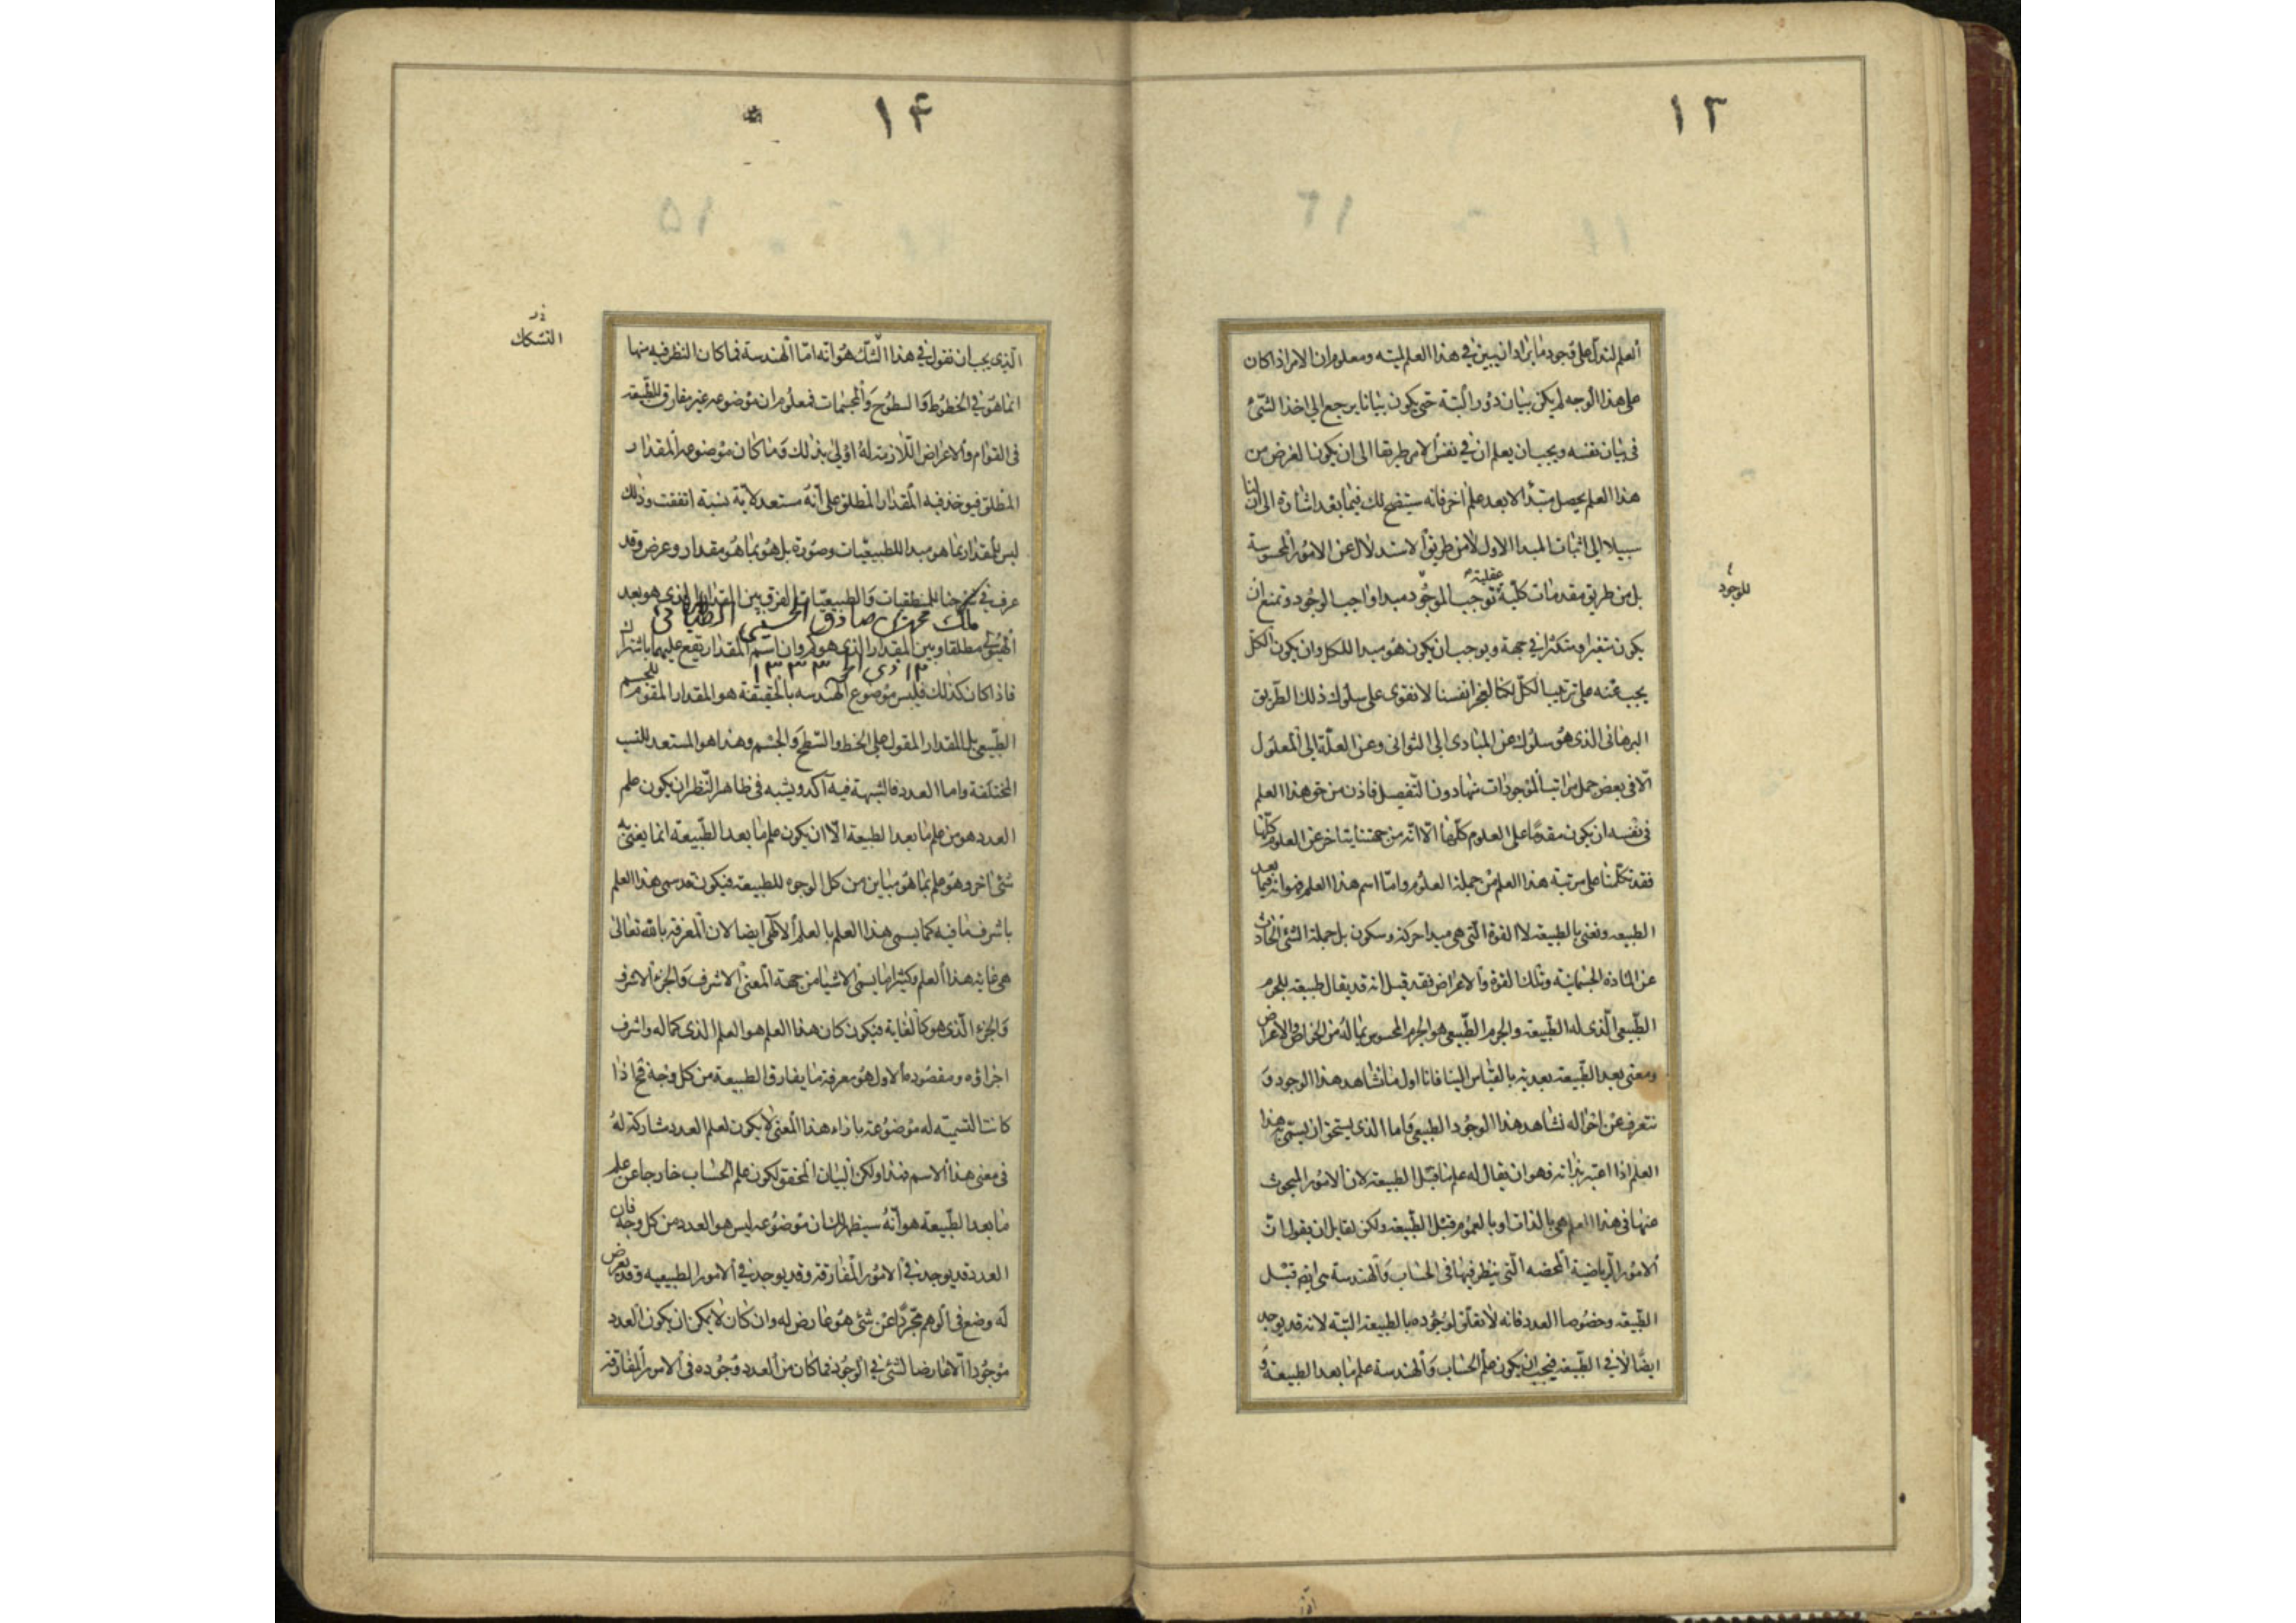 ١٣
العلم لتدل على وجود ما يراد ان يبين في هذا العلم لميته ومعلوم ان الامر اذا كان
على هذا الوجه لم يكن بيان دور البتة حتى يكون بيانا يرجع الى اخذ الشئ
في بيان نفسه ويجب ان يعلم ان في نفس الامر طريقا الى ان يكون الغرض من
هذا العلم يحصل مبتدا لا بعد علم اخر فانه ستيضح لك فيما بعد اشارة الى ان لنا
سبيلا الى اثبات المبدا الاول لا من طريق الاستدلال عن الامور المحسوسة
بل من طريق مقدمات كلية عقلية توجب للموجود مبدا واجب الوجود وتمنع ان
للوجود
يكون متغيرا ومتكثرا في جهة ويوجب ان يكون هو مبدا للكل وان يكون الكل
يجب عنه على ترتيب الكل لكنا لعجز انفسنا لا نقوى على سلوك ذلك الطريق
البرهاني الذى هو سلوك عن المبادى الى الثوانى وعن العلة الى المعلول
الا في بعض جمل مراتب الموجودات منها دون التفصيل فاذن من حق هذا العلم
في نفسه ان يكون مقدما على العلوم كلها الا انه من جهتنا يتاخر عن العلوم كلها
فقد تكلمنا على مرتبة هذا العلم من جملة العلوم واما اسم هذا العلم فهو انه فيما بعد
الطبيعه ونعنى بالطبيعة لا القوة التى هى مبدا حركة وسكون بل جملة الشئ الحادث
عن المادة الجسمانية وتلك القوة والاعراض فقد قيل انه قد يقال طبيعة للجرم
الطبيعى الذى له الطبيعة والجرم الطبيعى هو الجرم المحسوس بما له من الخواص والاعراض
ومعنى بعد الطبيعة بعدية بالقياس الينا فانا اول ما نشاهد هذا الوجود و
نتعرف عن احواله نشاهد هذا الوجود الطبيعى واما الذى يستحق ان يسمى به هذا
العلم اذا اعتبر بذاته فهو ان يقال له علم ما قبل الطبيعة لان الامور المبحوث
عنها في هذا العلم هى بالذات او بالعموم قبل الطبيعة ولكن لقايل ان يقول ان
الامور الرياضية المحضه التى ينظر فيها في الحساب والهندسة هى ايضا قبل
الطبيعة وخصوصا العدد فانه لا تعلق لوجوده بالطبيعة البتة لانه قد يوجد
ايضا لا في الطبيعة فيجب ان يكون علم الحساب والهندسة علم ما بعد الطبيعة و
١٤
الذى يجب ان نقول في هذا الشك هو انه اما الهندسة فما كان النظر فيه منها
التشكك
انما هو في الخطوط والسطوح والمجسمات فمعلوم ان موضوعه غير مفارق للطبيعة
في القوام والاعراض اللازمة له اولى بذلك وما كان موضوعه المقدار
المطلق فيوخذ فيه المقدار المطلق على انه مستعد لاية نسبة اتفقت وذلك
ليس للمقدار بما هو مبدا للطبيعيات وصورة بل هو بما هو مقدار وعرض وقد
عرف في شرحنا للمنطقيات والطبيعيات الفرق بين المقدار الذى هو بعد
ملك محمد بن صادق الحسينى الطباطبائى
الهيولى مطلقا وبين المقدار الذى هو كم وان اسم المقدار يقع عليهما باشتراك
١٣٣٣
فاذا كان كذلك فليس موضوع الهندسه بالحقيقة هو المقدار المقوم للجسم
الطبيعى بل المقدار المقول على الخط والسطح والجسم وهذا هو المستعد للنسب
المختلفة واما العدد فالشبهة فيه آكد ويشبه في ظاهر النظر ان يكون علم
العدد هو من علم ما بعد الطبيعة الا ان يكون علم ما بعد الطبيعة انما يعنى به
شئ اخر وهو علم بما هو مباين من كل الوجوه للطبيعة فيكون قد سمى هذا العلم
باشرف ما فيه كما يسمى هذا العلم بالعلم الالهى ايضا لان المعرفة بالله تعالى
هى غاية هذا العلم وكثيرا ما يسمى الاشيا من جهة المعنى الاشرف والجزء الاشرف
والجزء الذى هو كالغاية فيكون كان هذا العلم هو العلم الذى كماله واشرف
اجزاؤه ومقصوده الاول هو معرفة ما يفارق الطبيعة من كل وجه فح اذا
كانت التسمية له موضوعة بازاء هذا المعنى لا يكون لعلم العدد مشاركة له
في معنى هذا الاسم فهذا ولكن البيان المحقق لكون علم الحساب خارجا عن علم
ما بعد الطبيعة هو انه سيظهر لك ان موضوعه ليس هو العدد من كل وجه فان
العدد قد يوجد في الامور المفارقة وقد يوجد في الامور الطبيعيه وقد يعرض
له وضع في الوهم مجردا عن شئ هو عارض له وان كان لا يمكن ان يكون العدد
موجودا الا عارضا لشئ في الوجود فما كان من العدد وجوده في الامور المفارقة